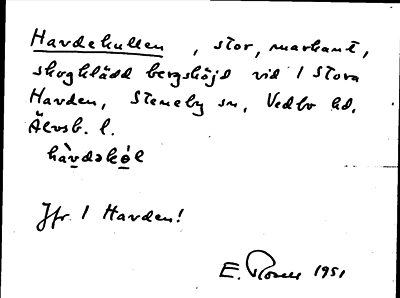 Havdekullen, stor, markant,
skogklädd bergshöjd vid 1 Stora
Havden, Steneby sn, Vedbo hd,
Älvsb. l.
hàvdəkól
Jfr 1 Havden!
E. 1951